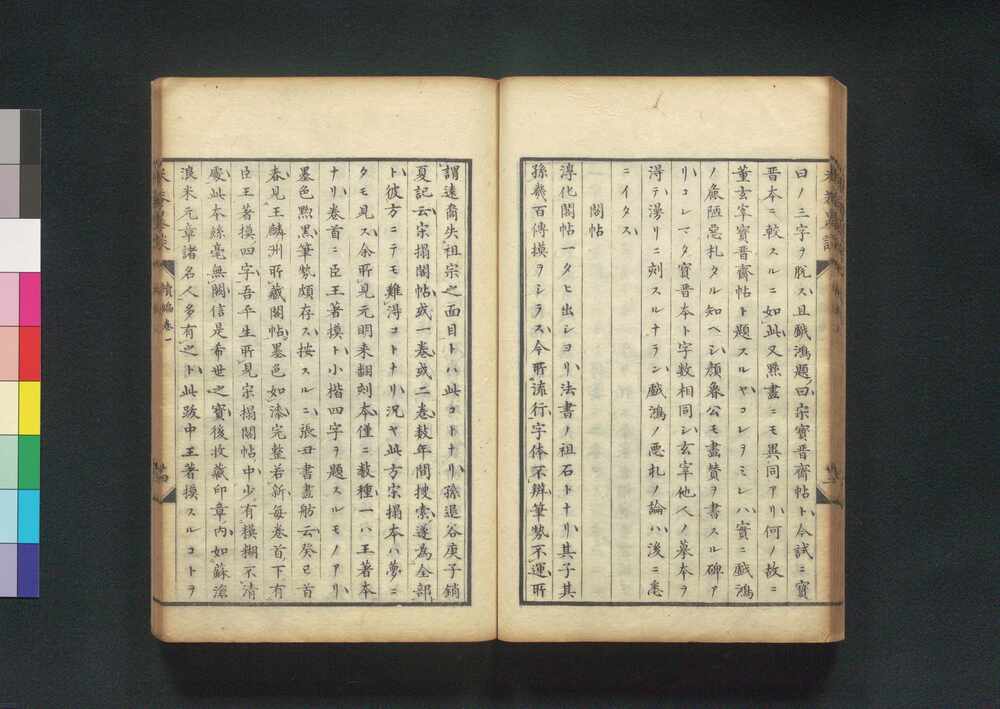 曰ノ三字ヲ脫ス且戲鴻題曰宗寳晋齋帖ト今試ニ寳
晋本ニ較スルニ如此又㸃畫ニモ異同アリ何ノ故ニ
董玄宰寳晋齋帖ト題スルヤコレヲミレハ實ニ戲鴻
ノ麁陋惡札タル知ヘシ顔魯公モ畫賛ヲ書スル碑ア
リコレマタ寳晋本ト字数相同シ玄宰他人ノ摹本ヲ
得テ漫リニ刻スルナラン戲鴻ノ悪札ノ論ハ後ニ悉
ニイタス
閣帖
淳化閣帖一タヒ出シヨリ法書ノ祖石トナリ其子其
孫幾百傳摸ヲシラス今所流行字体不辨筆勢不運所
謂遠裔失祖宗之面目トハ此コトナリ孫退谷庚子銷
夏記云宗搨閣帖或一巻或二巻数年間搜索遂為全部
ト彼方ニテモ難得コトナリ況ヤ此方宗搨本ハ夢ニ
タモ見ス余所見元明来翻刻本僅ニ数種一ハ王著本
ナリ巻首ニ臣王著摸ト小楷四字ヲ題スルモノアリ
墨色㸃黒筆勢頗存ス按スルニ張丑書畫舫云癸巳首
春見王麟州所藏閣帖墨色如漆完整若新每巻首下有
臣王著摸四字吾平生所見宗搨閣帖中少有模糊不清
處此本絲毫無闕信是希世之寳後收藏印章内如蘇滄
浪米元章諸名人多有之ト此跋中王著摸スルコトヲ
續編巻一